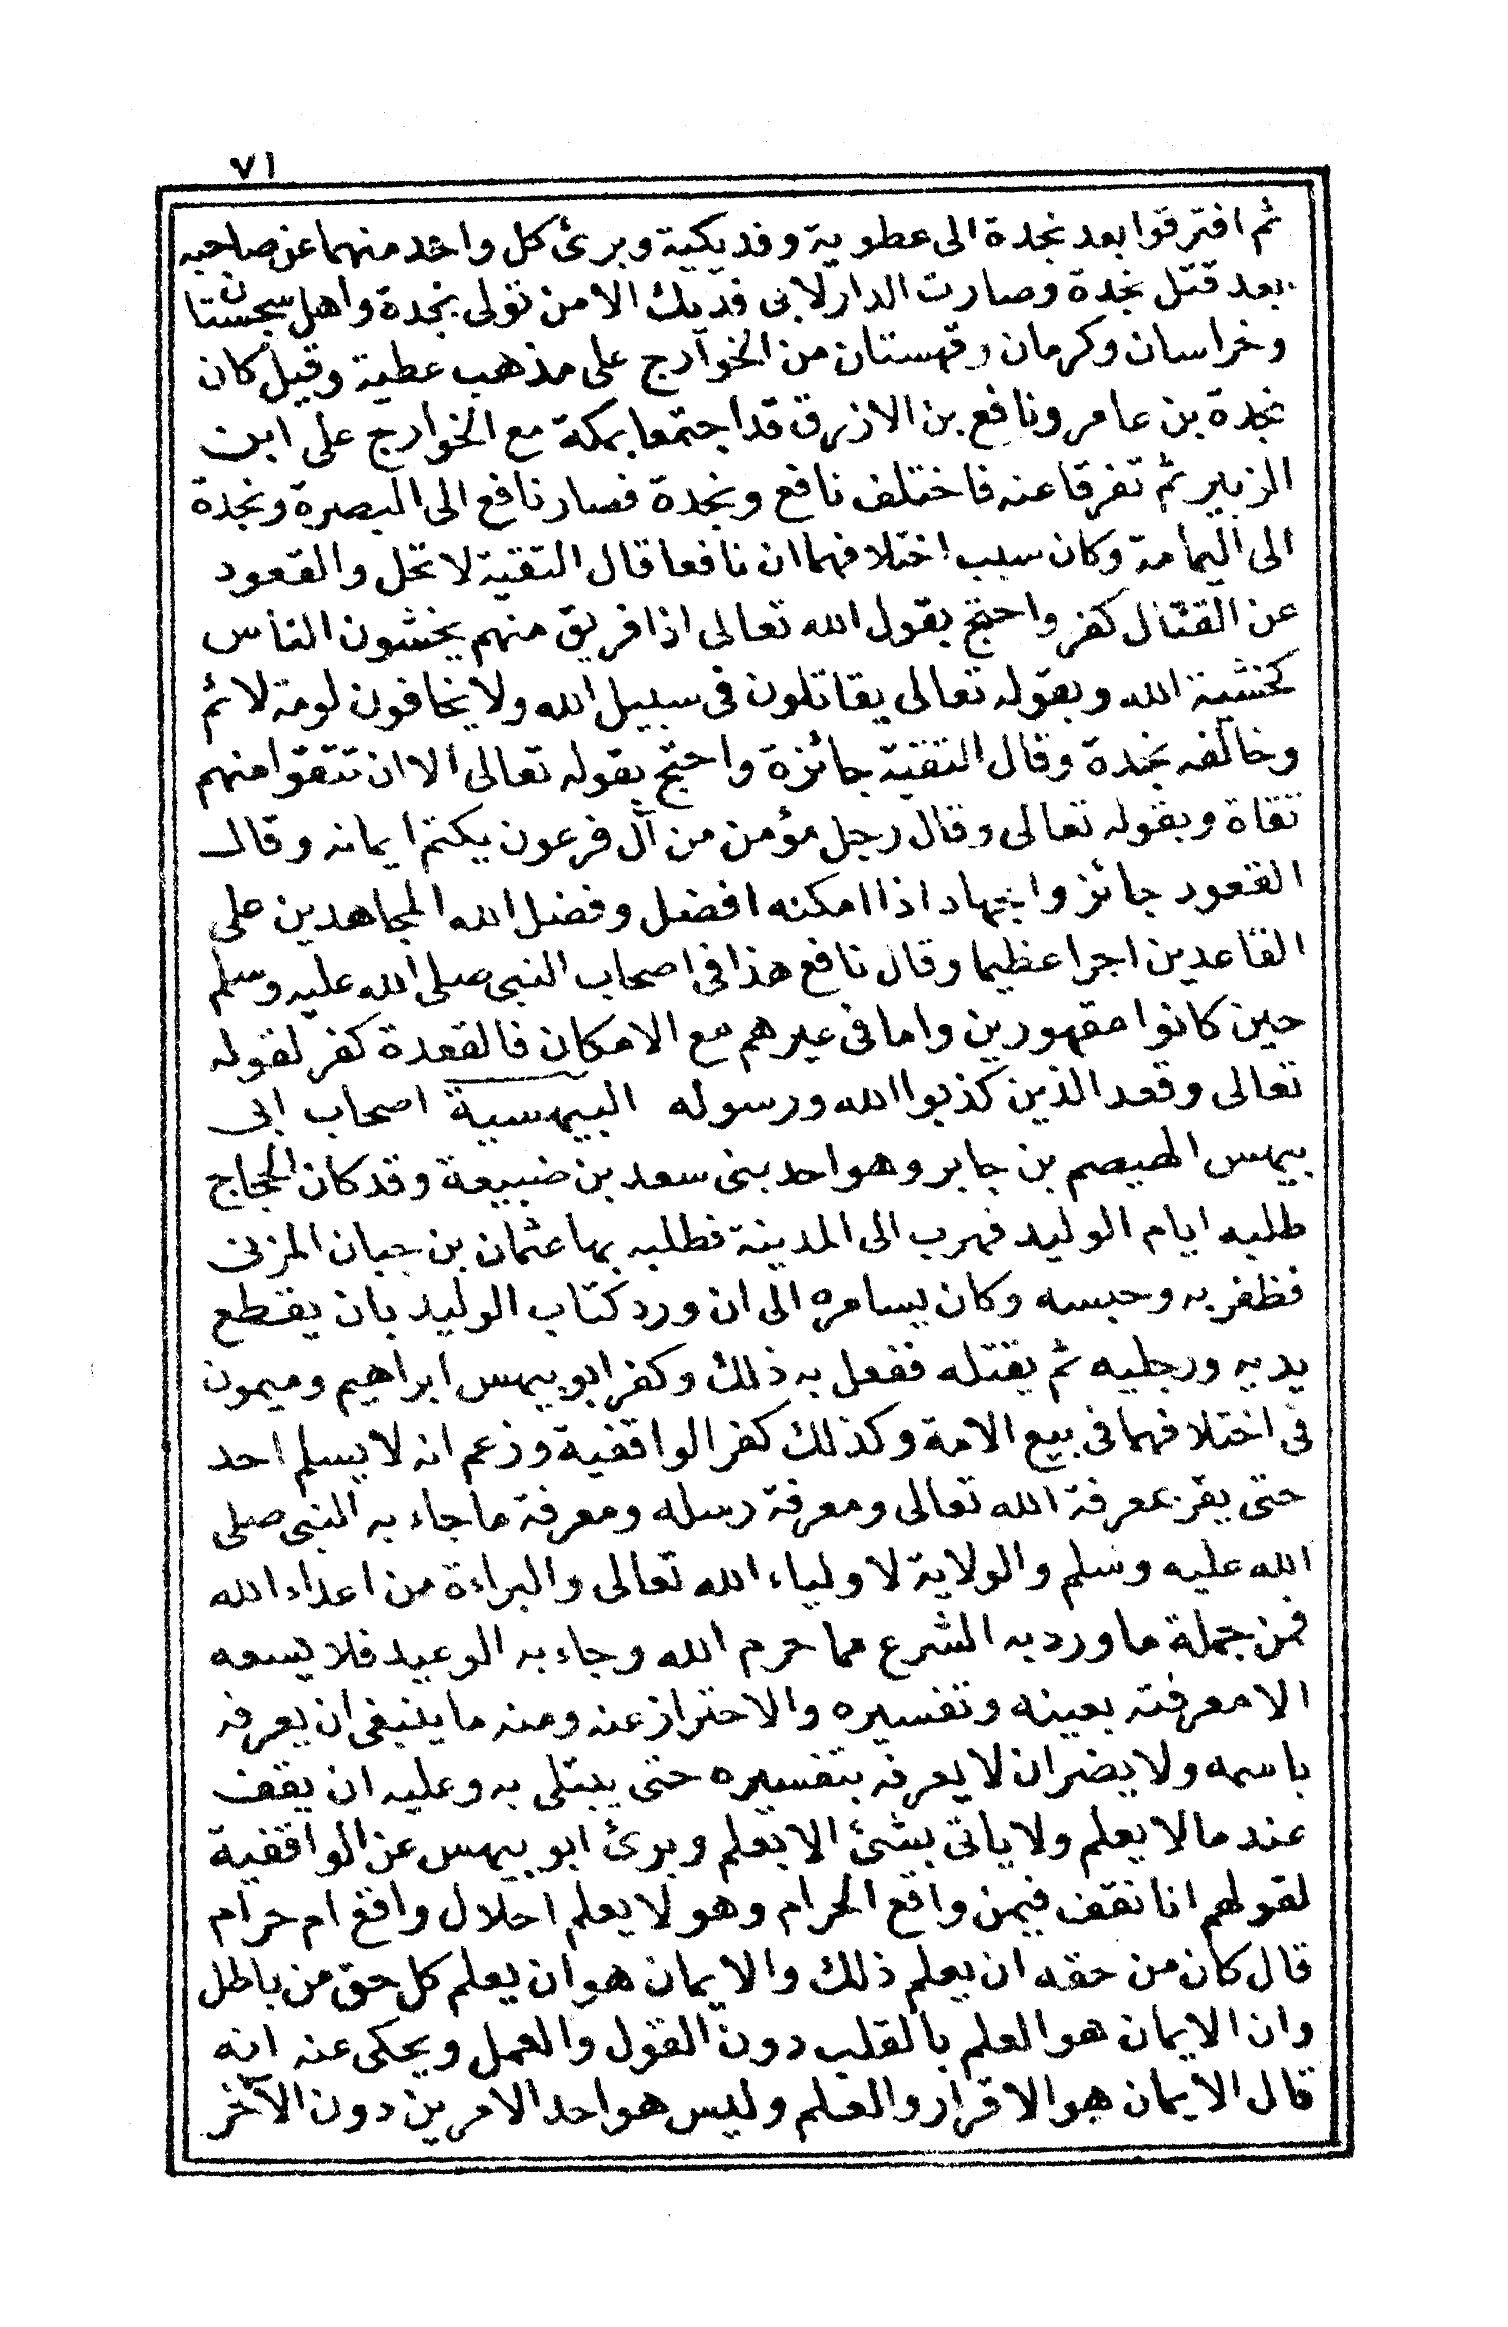 ٧١
ثم افترقوا بعد نجدة الى عطوية وفديكية وبرئ كل واحد منهما عن صاحبه
بعد قتل نجدة وصارت الدار لابى فديك الا من تولى نجدة واهل سجستان
وخراسان وكرمان وقهستان من الخوارج على مذهب عطية وقيل كان
نجدة بن عامر ونافع بن الازرق قد اجتمعا بمكة مع الخوارج على ابن
الزبير ثم تفرقا عنه فاختلف نافع ونجدة فصار نافع الى البصرة ونجدة
الى اليمامة وكان سبب اختلافهما ان نافعا قال التقية لا تحل والقعود
عن القتال كفر واحتج بقول الله تعالى اذا فريق منهم يخشون الناس
كخشية الله وبقوله تعالى يقاتلون فى سبيل الله ولا يخافون لومة لائم
وخالفه نجدة وقال التقية جائزة واحتج بقوله تعالى الا ان تتقوا منهم
تقاة وبقوله تعالى وقال رجل مؤمن من آل فرعون يكتم ايمانه وقال
القعود جائز والجهاد اذا امكنه افضل وفضل الله المجاهدين على
القاعدين اجرا عظيما وقال نافع هذا فى اصحاب النبى صلى الله عليه وسلم
حين كانوا مقهورين واما فى غيرهم مع الامكان فالقعدة كفر لقوله
تعالى وقعد الذين كذبوا الله ورسوله البيهسية اصحاب ابى
بيهس الهيصم بن جابر وهو احد بنى سعد بن ضبيعة وقد كان الحجاج
طلبه ايام الوليد فهرب الى المدينة فطلبه بها عثمان بن حبان المزنى
فظفر به وحبسه وكان يسامره الى ان ورد كتاب الوليد بان يقطع
يديه ورجليه ثم يقتله ففعل به ذلك وكفر ابو بيهس ابراهيم وميمون
فى اختلافهما فى بيع الامة وكذلك كفر الواقفية وزعم انه لا يسلم احد
حتى يقر بمعرفة الله تعالى ومعرفة رسله ومعرفة ما جاء به النبى صلى
الله عليه وسلم والولاية لاولياء الله تعالى والبراءة من اعداء الله
فمن جملة ما ورد به الشرع مما حرم الله وجاء به الوعيد فلا يسعه
الا معرفته بعينه وتفسيره والاحتراز عنه ومنه ما ينبغى ان يعرفه
باسمه ولا يضر ان لا يعرفه بتفسيره حتى يبتلى به وعليه ان يقف
عند ما لا يعلم ولا ياتى بشئ الا بعلم وبرئ ابو بيهس عن الواقفية
لقولهم انا نقف فيمن واقع الحرام وهو لا يعلم احلال واقع ام حرام
قال كان من حقه ان يعلم ذلك والايمان هو ان يعلم كل حق من باطل
وان الايمان هو العلم بالقلب دون القول والعمل ويحكى عنه انه
قال الايمان هو الاقرار والعلم وليس هو احد الامرين دون الآخر